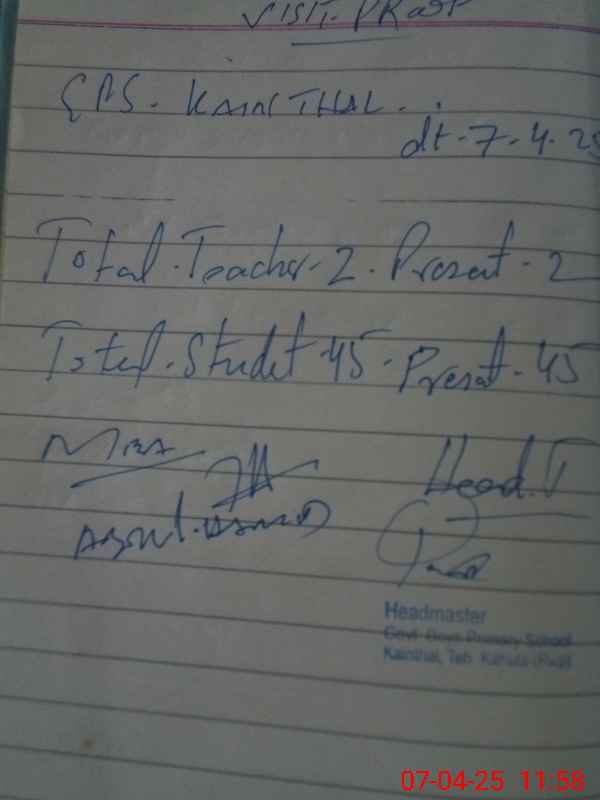 VISIT. PRoof
GPS. KAINTHAL.
dt-7-4-25
Total. Teacher-2. Present-2
Total. Student-45. Present-45
Head.T
Headmaster
Govt Boys Primary School
Kainthal, Teh Kahuta (Rwp)
07-04-25 11:58